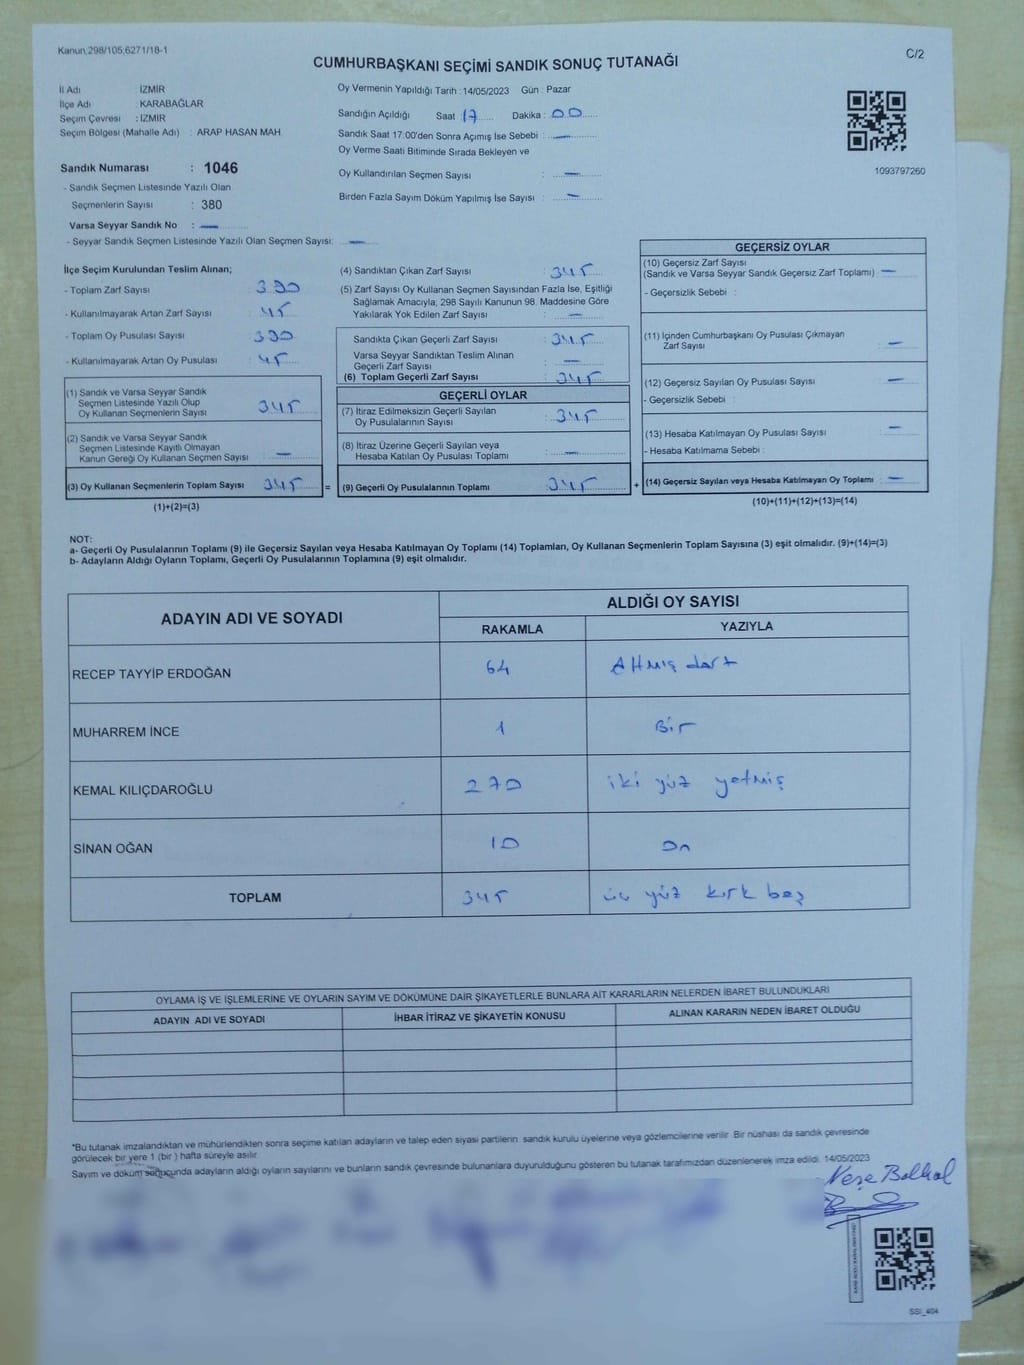 Kanun;298/105;6271/18-1
C/2
CUMHURBAŞKANI SEÇİMİ SANDIK SONUÇ TUTANAĞI
İl Adı : İZMİR
İlçe Adı : KARABAĞLAR
Seçim Çevresi : İZMİR
Seçim Bölgesi (Mahalle Adı) : ARAP HASAN MAH
Sandık Numarası : 1046
- Sandık Seçmen Listesinde Yazılı Olan
Seçmenlerin Sayısı : 380
Varsa Seyyar Sandık No : —
- Seyyar Sandık Seçmen Listesinde Yazılı Olan Seçmen Sayısı: —
Oy Vermenin Yapıldığı Tarih : 14/05/2023 Gün : Pazar
Sandığın Açıldığı Saat 17 Dakika : 00
Sandık Saat 17:00'den Sonra Açımış İse Sebebi : —
Oy Verme Saati Bitiminde Sırada Bekleyen ve
Oy Kullandırılan Seçmen Sayısı : —
Birden Fazla Sayım Döküm Yapılmış İse Sayısı : —
1093797260
İlçe Seçim Kurulundan Teslim Alınan;
- Toplam Zarf Sayısı : 390
- Kullanılmayarak Artan Zarf Sayısı : 45
- Toplam Oy Pusulası Sayısı : 390
- Kullanılmayarak Artan Oy Pusulası : 45
(1) Sandık ve Varsa Seyyar Sandık
Seçmen Listesinde Yazılı Olup
Oy Kullanan Seçmenlerin Sayısı : 345
(2) Sandık ve Varsa Seyyar Sandık
Seçmen Listesinde Kayıtlı Olmayan
Kanun Gereği Oy Kullanan Seçmen Sayısı : —
(3) Oy Kullanan Seçmenlerin Toplam Sayısı : 345
(1)+(2)=(3)
(4) Sandıktan Çıkan Zarf Sayısı : 345
(5) Zarf Sayısı Oy Kullanan Seçmen Sayısından Fazla İse, Eşitliği
Sağlamak Amacıyla; 298 Sayılı Kanunun 98. Maddesine Göre
Yakılarak Yok Edilen Zarf Sayısı : —
Sandıkta Çıkan Geçerli Zarf Sayısı : 345
Varsa Seyyar Sandıktan Teslim Alınan
Geçerli Zarf Sayısı : —
(6) Toplam Geçerli Zarf Sayısı : 345
GEÇERLİ OYLAR
(7) İtiraz Edilmeksizin Geçerli Sayılan
Oy Pusulalarının Sayısı : 345
(8) İtiraz Üzerine Geçerli Sayılan veya
Hesaba Katılan Oy Pusulası Toplamı : —
= (9) Geçerli Oy Pusulalarının Toplamı : 345
GEÇERSİZ OYLAR
(10) Geçersiz Zarf Sayısı
(Sandık ve Varsa Seyyar Sandık Geçersiz Zarf Toplamı) : —
- Geçersizlik Sebebi :
(11) İçinden Cumhurbaşkanı Oy Pusulası Çıkmayan
Zarf Sayısı : —
(12) Geçersiz Sayılan Oy Pusulası Sayısı : —
- Geçersizlik Sebebi :
(13) Hesaba Katılmayan Oy Pusulası Sayısı : —
- Hesaba Katılmama Sebebi :
+ (14) Geçersiz Sayılan veya Hesaba Katılmayan Oy Toplamı : —
(10)+(11)+(12)+(13)=(14)
NOT:
a- Geçerli Oy Pusulalarının Toplamı (9) ile Geçersiz Sayılan veya Hesaba Katılmayan Oy Toplamı (14) Toplamları, Oy Kullanan Seçmenlerin Toplam Sayısına (3) eşit olmalıdır. (9)+(14)=(3)
b- Adayların Aldığı Oyların Toplamı, Geçerli Oy Pusulalarının Toplamına (9) eşit olmalıdır.
ADAYIN ADI VE SOYADI ALDIĞI OY SAYISI
RAKAMLA YAZIYLA
RECEP TAYYİP ERDOĞAN 64 Altmış dört
MUHARREM İNCE 1 Bir
KEMAL KILIÇDAROĞLU 270 iki yüz yetmiş
SİNAN OĞAN 10 On
TOPLAM 345 üç yüz kırk beş
OYLAMA İŞ VE İŞLEMLERİNE VE OYLARIN SAYIM VE DÖKÜMÜNE DAİR ŞİKAYETLERLE BUNLARA AİT KARARLARIN NELERDEN İBARET BULUNDUKLARI
ADAYIN ADI VE SOYADI İHBAR İTİRAZ VE ŞİKAYETİN KONUSU ALINAN KARARIN NEDEN İBARET OLDUĞU
*Bu tutanak imzalandıktan ve mühürlendikten sonra seçime katılan adayların ve talep eden siyasi partilerin sandık kurulu üyelerine veya gözlemcilerine verilir. Bir nüshası da sandık çevresinde
görülecek bir yere 1 (bir ) hafta süreyle asılır.
Sayım ve döküm sonucunda adayların aldığı oyların sayılarını ve bunların sandık çevresinde bulunanlara duyurulduğunu gösteren bu tutanak tarafımızdan düzenlenerek imza edildi. 14/05/2023
SSI_404